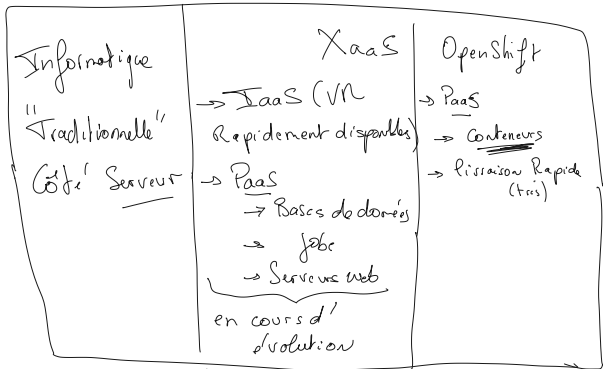 Informatique
"Traditionnelle"
Côté Serveur
XaaS
→ IaaS (VM
Rapidement disponibles)
→ PaaS
→ Bases de données
→ Jobs
→ Serveurs web
en cours d'
évolution
OpenShift
→ PaaS
→ Conteneurs
→ Livraison Rapide
(très)